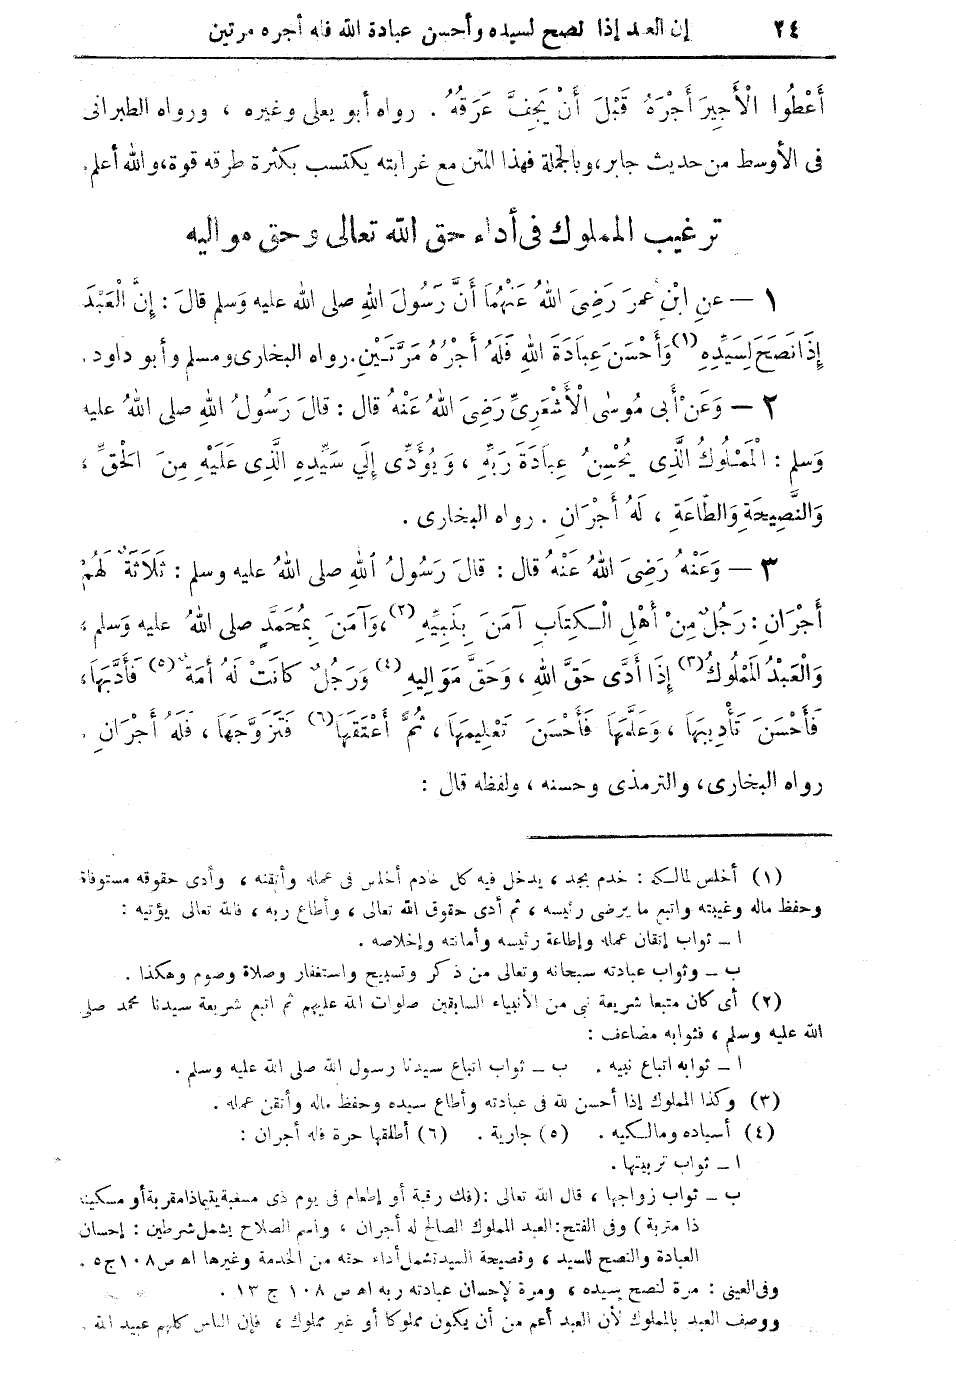 ٢٤ إن العبد إذا نصح لسيده وأحسن عبادة الله فله أجره مرتين
أَعْطُوا الْأَجِيرَ أَجْرَهُ قَبْلَ أَنْ يَجِفَّ عَرَقُهُ . رواه أبو يعلى وغيره ، ورواه الطبرانى
فى الأوسط من حديث جابر، وبالجملة فهذا المتن مع غرابته يكتسب بكثرة طرقه قوة، والله أعلم.
ترغيب المملوك فى أداء حق الله تعالى وحق مواليه
١ — عنِ ابْنِ عمرَ رَضِىَ اللهُ عَنْهُمَا أَنَّ رَسُولَ اللهِ صلى الله عليه وَسلم قالَ : إِنَّ الْعَبْدَ
إِذَا نَصَحَ لِسَيِّدِهِ (١) وَأَحْسَنَ عِبَادَةَ اللهِ فَلَهُ أَجْرُهُ مَرَّتَيْنِ. رواه البخارى ومسلم وأبو داود .
٢ — وَعَنْ أَبى مُوسٰى الْأَشْعَرِىِّ رَضِىَ اللهُ عَنْهُ قال : قالَ رَسُولُ اللهِ صلى اللهُ عليه
وَسلم : الْمَمْلُوكُ الَّذِى يُحْسِنُ عِبَادَةَ رَبِّهِ ، وَيُؤَدِّى إِلَى سَيِّدِهِ الَّذِى عَلَيْهِ مِنَ الْحَقِّ ،
وَالنَّصِيحَةِ وَالطَّاعَةِ ، لَهُ أَجْرَانِ . رواه البخارى .
٣ — وَعَنْهُ رَضِىَ اللهُ عَنْهُ قال : قالَ رَسُولُ اللهِ صلى اللهُ عليه وسلم : ثَلَاثَةٌ لَهُمْ
أَجْرَانِ : رَجُلٌ مِنْ أَهْلِ الْكِتَابِ آمَنَ بِنَبِيِّهِ (٢)، وَآمَنَ بِمُحَمَّدٍ صلى اللهُ عليه وَسلم ،
وَالْعَبْدُ الْمَمْلُوكُ (٣) إِذَا أَدَّى حَقَّ اللهِ ، وَحَقَّ مَوَالِيهِ (٤) وَرَجُلٌ كانَتْ لَهُ أَمَةٌ (٥) فَأَدَّبَهَا،
فَأَحْسَنَ تَأْدِيبَهَا ، وَعَلَّمَهَا فَأَحْسَنَ تَعْلِيمَهَا ، ثُمَّ أَعْتَقَهَا (٦) فَتَزَوَّجَهَا ، فَلَهُ أَجْرَانِ .
رواه البخارى، والترمذى وحسنه ، ولفظه قال :
(١) أخلص لمالكه : خدم بجد ، يدخل فيه كل خادم أخلص فى عمله وأتقنه ، وأدى حقوقه مستوفاة
وحفظ ماله وغيبته واتبع ما يرضى رئيسه ، ثم أدى حقوق الله تعالى ، وأطاع ربه ، فالله تعالى يؤتيه :
ا ــ ثواب إتقان عمله وإطاعة رئيسه وأمانته وإخلاصه .
ب ــ وثواب عبادته سبحانه وتعالى من ذكر وتسبيح واستغفار وصلاة وصوم وهكذا .
(٢) أى كان متبعا شريعة نبى من الأنبياء السابقين صلوات الله عليهم ثم اتبع شريعة سيدنا محمد صلى
الله عليه وسلم ، فثوابه مضاعف :
ا ــ ثوابه اتباع نبيه . ب ــ ثواب اتباع سيدنا رسول الله صلى الله عليه وسلم .
(٣) وكذا المملوك إذا أحسن لله فى عبادته وأطاع سيده وحفظ ماله وأتقن عمله .
(٤) أسياده ومالكيه . (٥) جارية . (٦) أطلقها حرة فله أجران :
ا ــ ثواب تربيتها .
ب ــ ثواب زواجها ، قال الله تعالى : (فك رقبة أو إطعام فى يوم ذى مسغبة يتيما ذا مقربة أو مسكينا
ذا متربة ) وفى الفتح: العبد المملوك الصالح له أجران ، واسم الصلاح يشمل شرطين : إحسان
العبادة والنصح للسيد ، ونصيحة السيد تشمل أداء حقه من الخدمة وغيرها اه ص ١٠٨ ج ٥ .
وفى العينى : مرة لنصح سيده ، ومرة لإحسان عبادته ربه اه ص ١٠٨ ج ١٣ .
ووصف العبد بالمملوك لأن العبد أعم من أن يكون مملوكا أو غير مملوك ، فإن الناس كلهم عبيد الله .